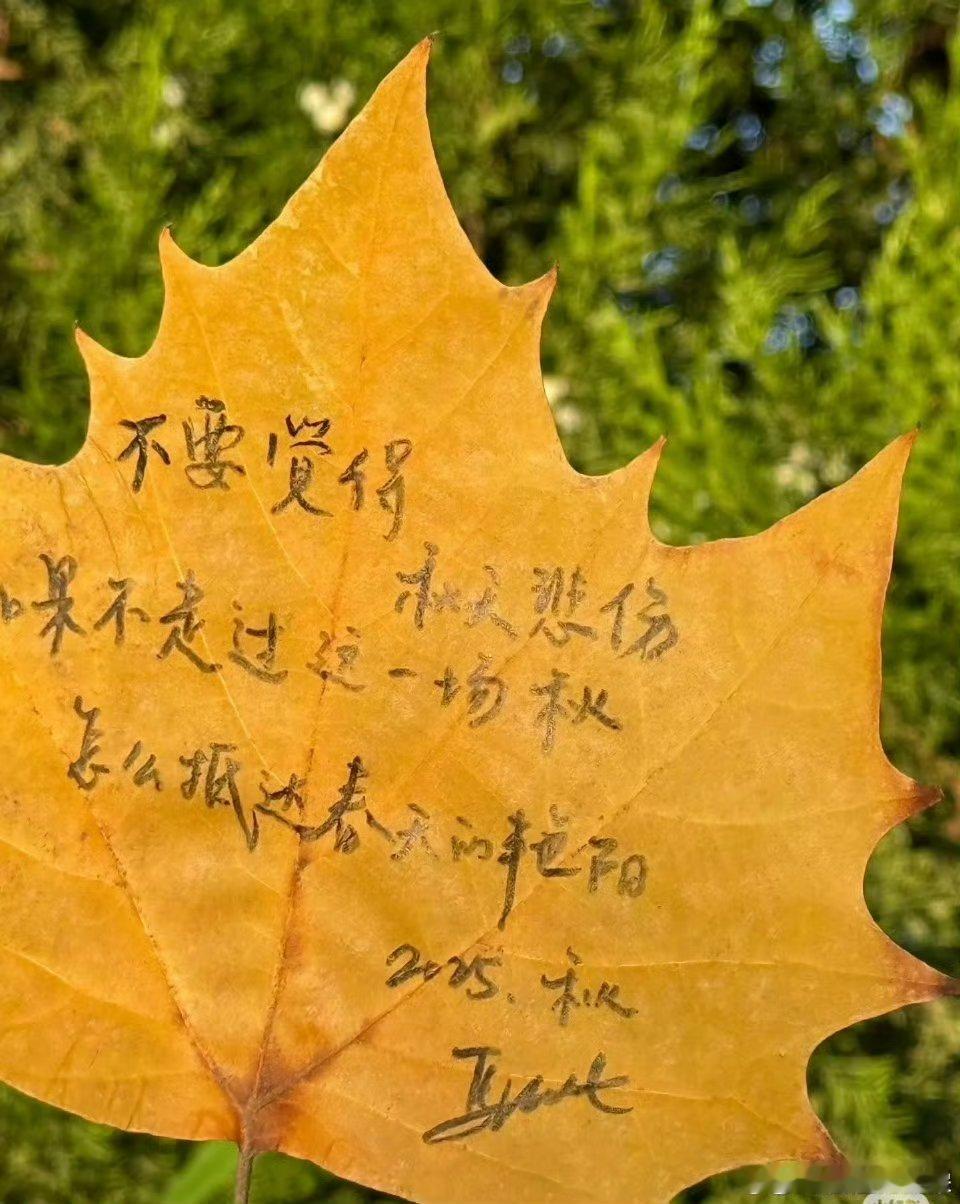 不要觉得
秋天悲伤
如果不走过这一场秋
怎么抵达春天的艳阳
2025.秋